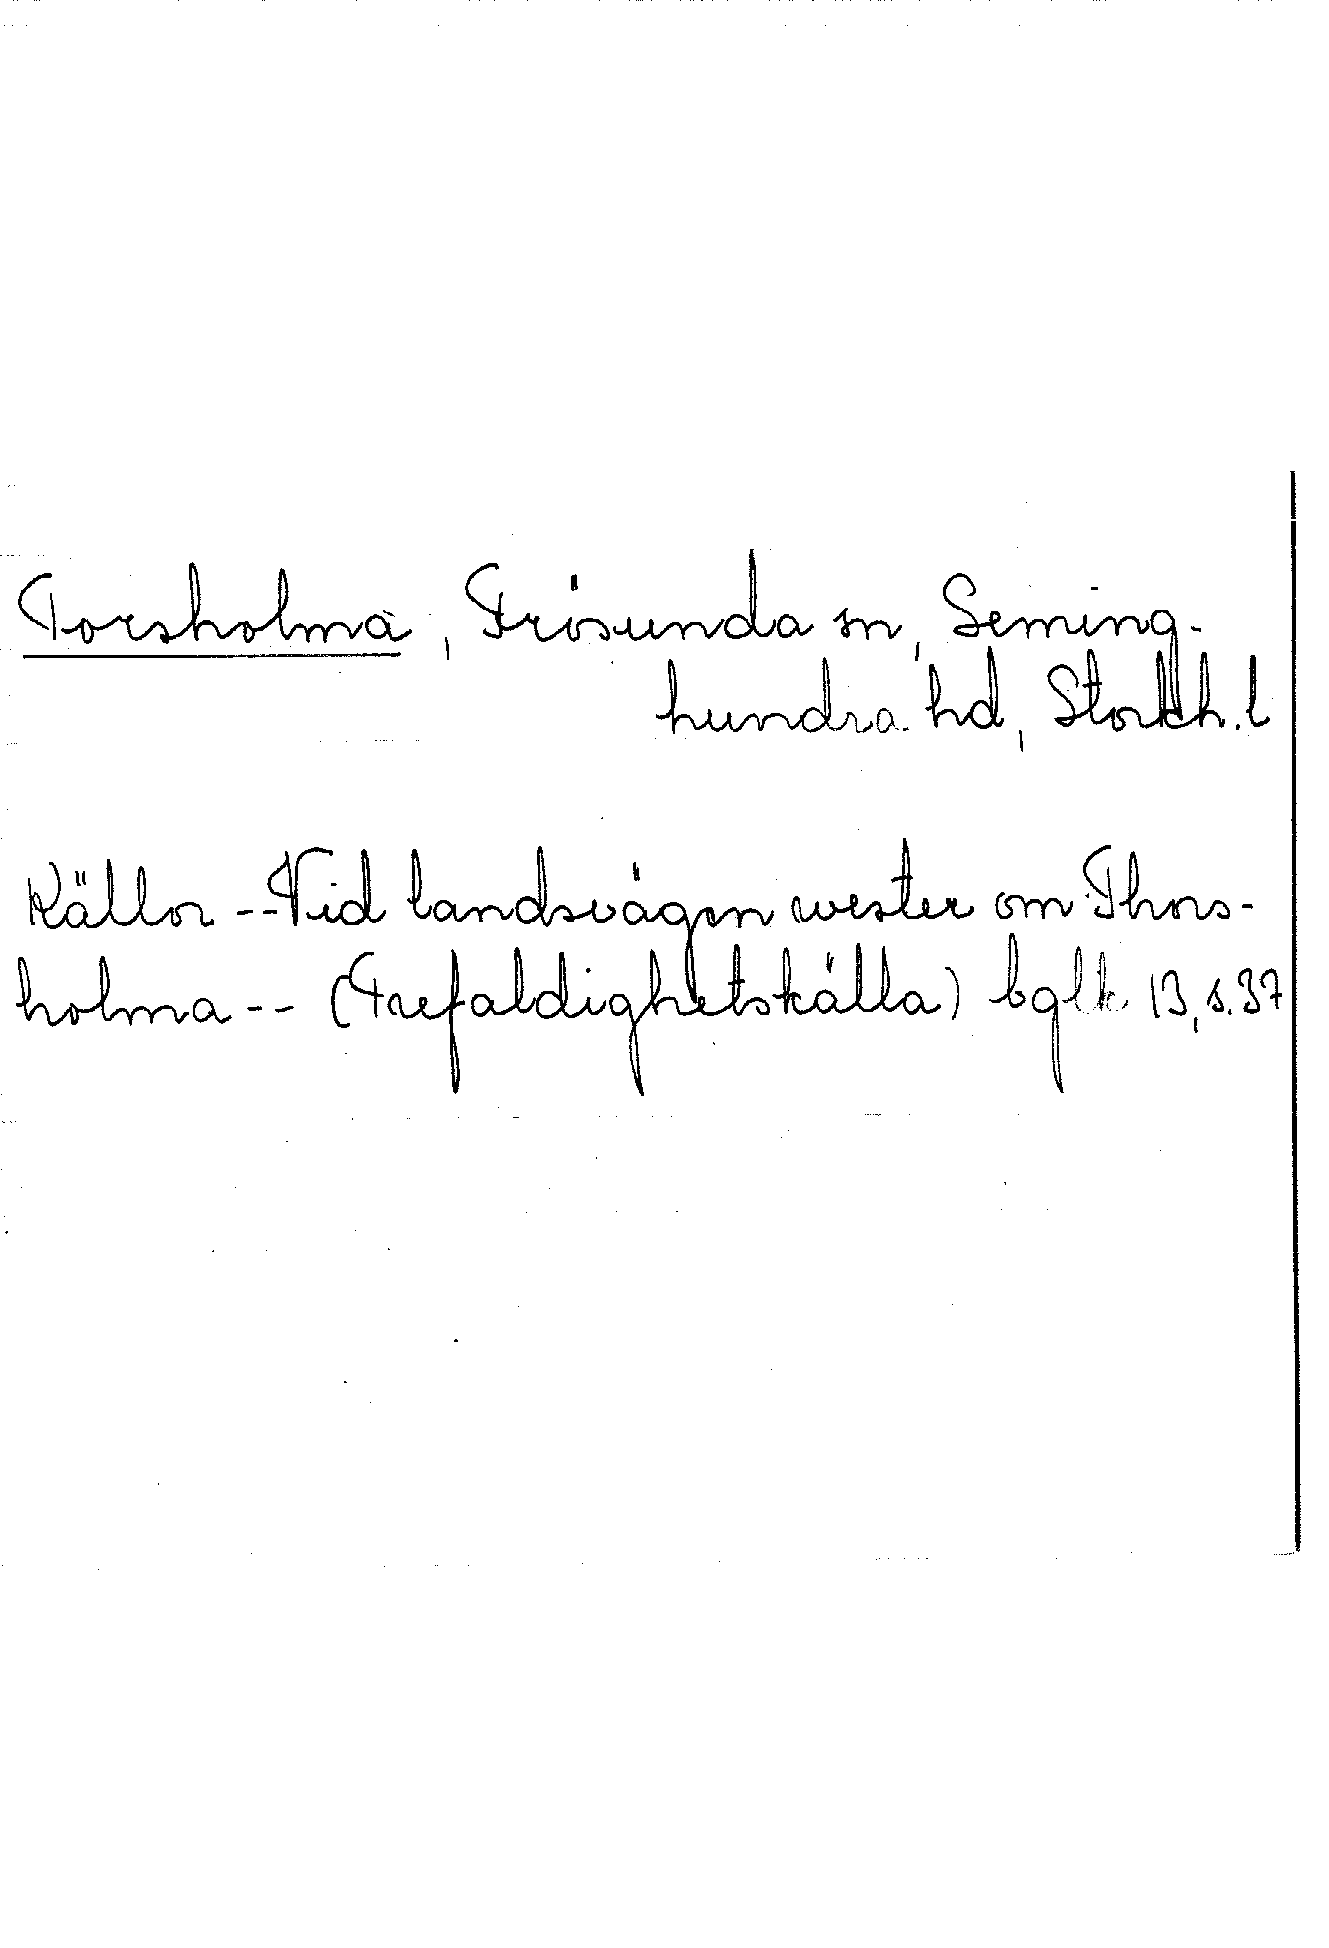 Torsholma, Frösunda sn, Seming-
hundra hd, Stockh. l
Källor -- Vid landsvägen wester om Thors-
holma -- (Trefaldighetskälla) bglk 13, s. 37